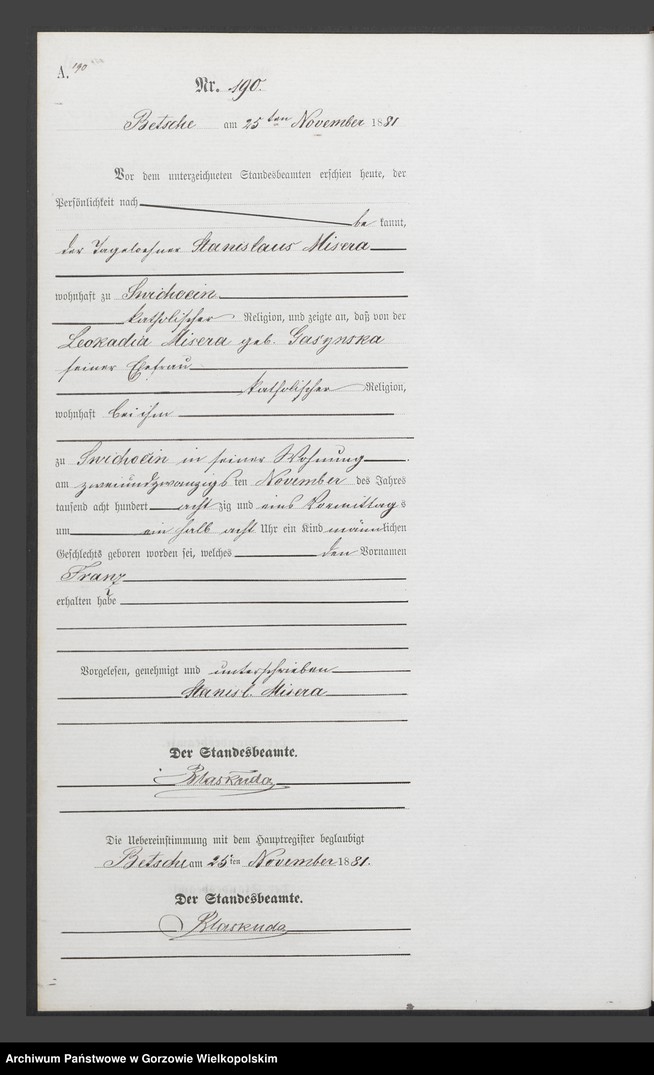 A. 190
Nr. 190.
Betsche am 25 ten November 1881
Vor dem unterzeichneten Standesbeamten erschien heute, der
Persönlichkeit nach
be kannt,
der Tageloehner Stanislaus Misera
wohnhaft zu Swichocin
katholischer Religion, und zeigte an, daß von der
Leokadia Misera geb. Gasynska
seiner Ehefrau
katholischer Religion,
wohnhaft bei ihm
zu Swichocin in seiner Wohnung
am zweiundzwanzigs ten November des Jahres
tausend acht hundert acht zig und eins Vormittags
um ein halb acht Uhr ein Kind männlichen
Geschlechts geboren worden sei, welches den Vornamen
Franz
erhalten habe
Vorgelesen, genehmigt und unterschrieben
Stanisl. Misera
Der Standesbeamte.
Blaskuda
Die Uebereinstimmung mit dem Hauptregister beglaubigt
Betsche am 25 ten November 1881.
Der Standesbeamte.
Blaskuda
Archiwum Państwowe w Gorzowie Wielkopolskim